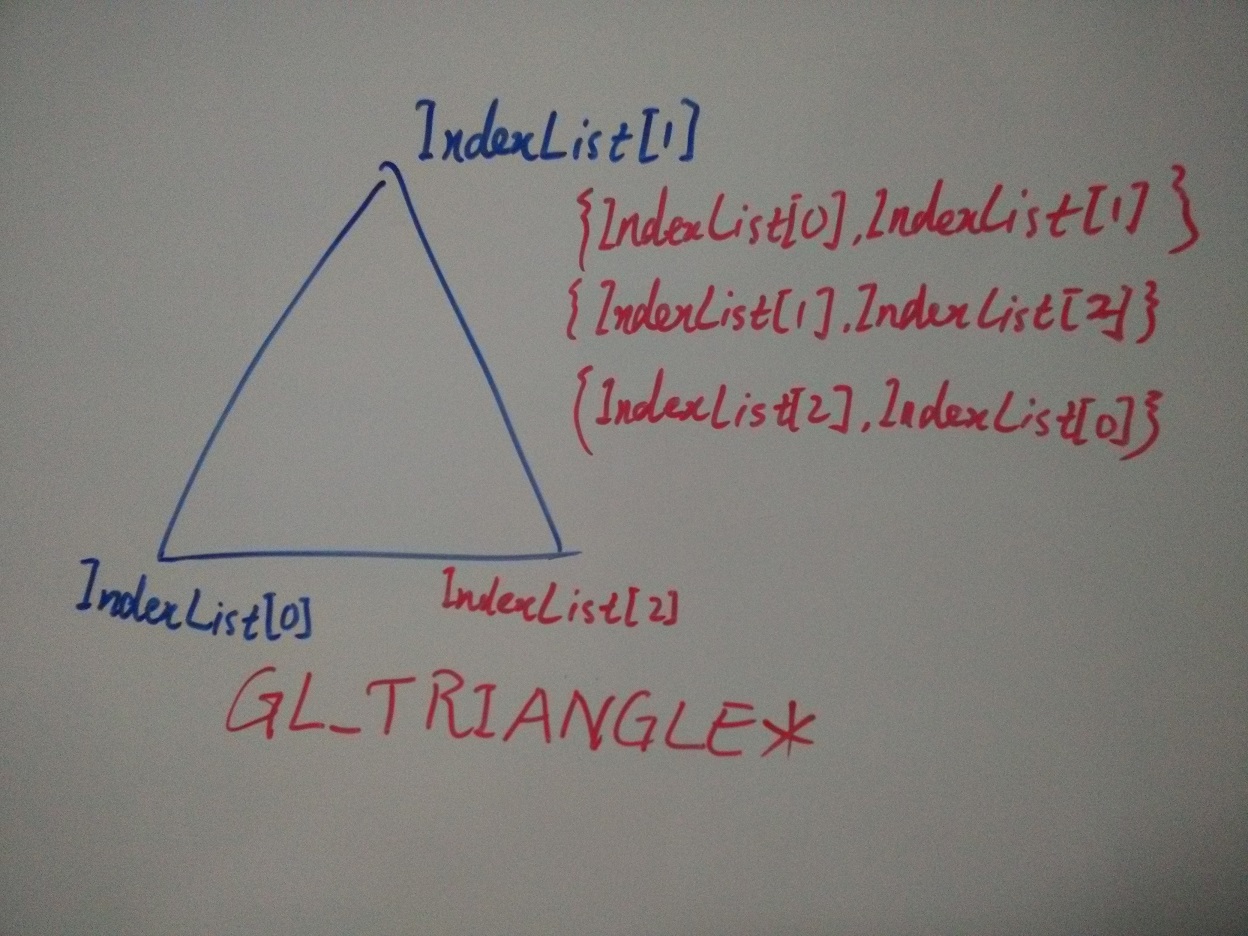 IndexList[1]
{IndexList[0],IndexList[1]}
{IndexList[1],IndexList[2]}
{IndexList[2],IndexList[0]}
IndexList[0]
IndexList[2]
GL_TRIANGLE*